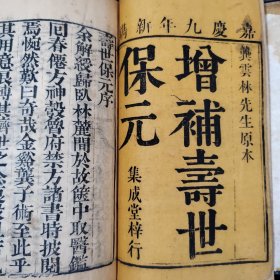 嘉慶九年新鐫
龔雲林先生原本
增補壽世
保元
集成堂梓行
壽世保元序
余解綬歸臥林麓間於故篋中取醫鑑
回春僊方神彀魯府禁方諸書時披閱
焉惋然歎曰奇哉金谿龔子術至此乎
其用意良博其濟世之